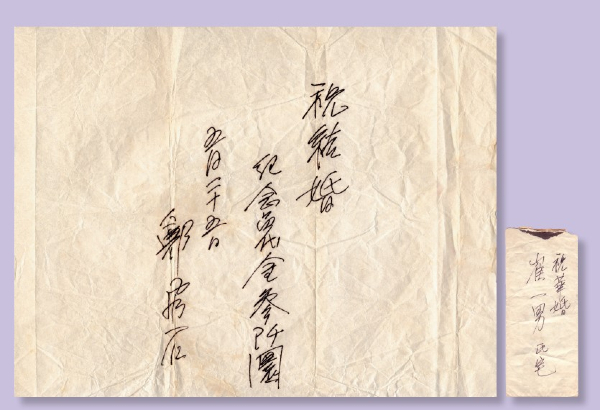 祝結婚
紀念品代金參阡圜
五月二十五日
鄭
祝華婚
崔一男 氏宅